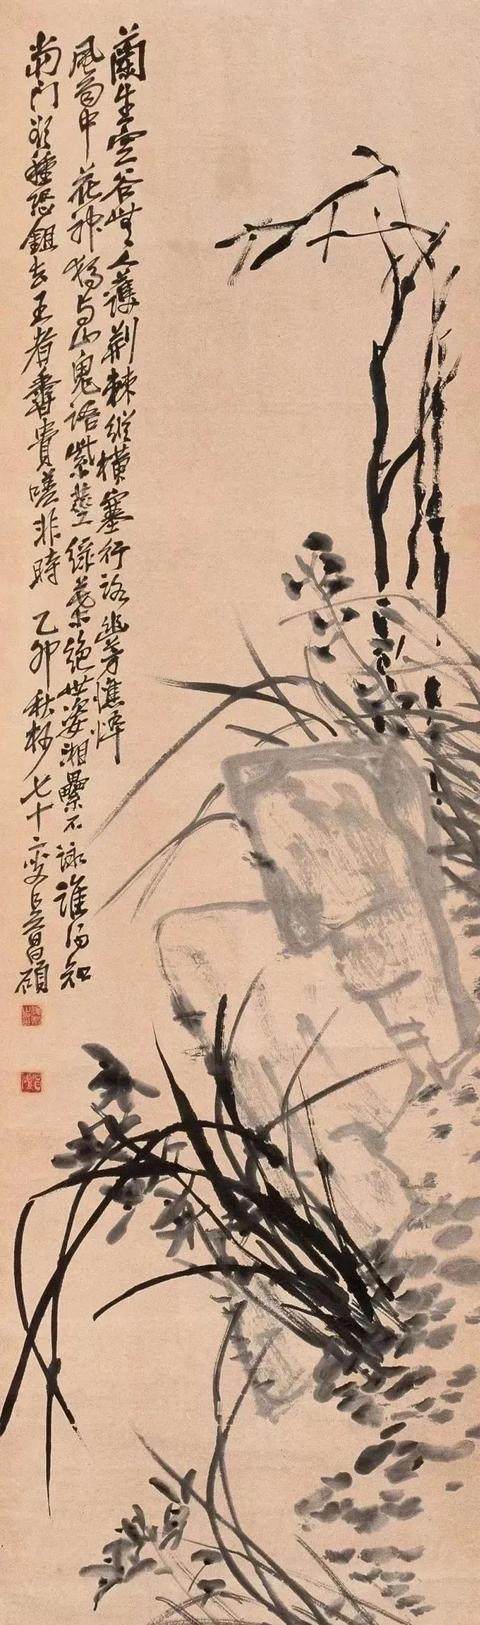 蘭生空谷無人護荆棘縱橫塞行路幽芳憔悴
風雨中花神獨與山鬼語紫莖綠葉絕世姿湘纍不詠誰得知
當門欲種恐鉏去王者香貴嗟非時 乙卯秋杪七十二叟吳昌碩